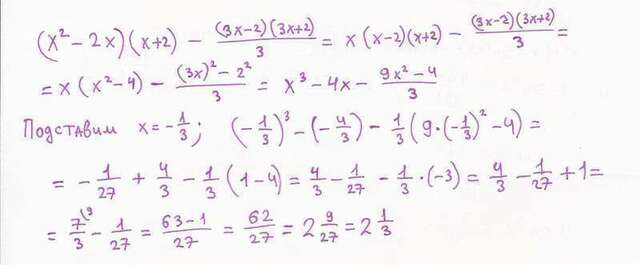 (x² - 2x)(x+2) - (3x-2)(3x+2)/3 = x(x-2)(x+2) - (3x-2)(3x+2)/3 =
= x(x²-4) - ((3x)² - 2²)/3 = x³ - 4x - (9x² - 4)/3
Подставим x = -1/3; (-1/3)³ - (-4/3) - 1/3(9·(-1/3)² - 4) =
= -1/27 + 4/3 - 1/3(1-4) = 4/3 - 1/27 - 1/3·(-3) = 4/3 - 1/27 + 1 =
= 7⁽⁹/3 - 1/27 = (63-1)/27 = 62/27 = 2 9/27 = 2 1/3